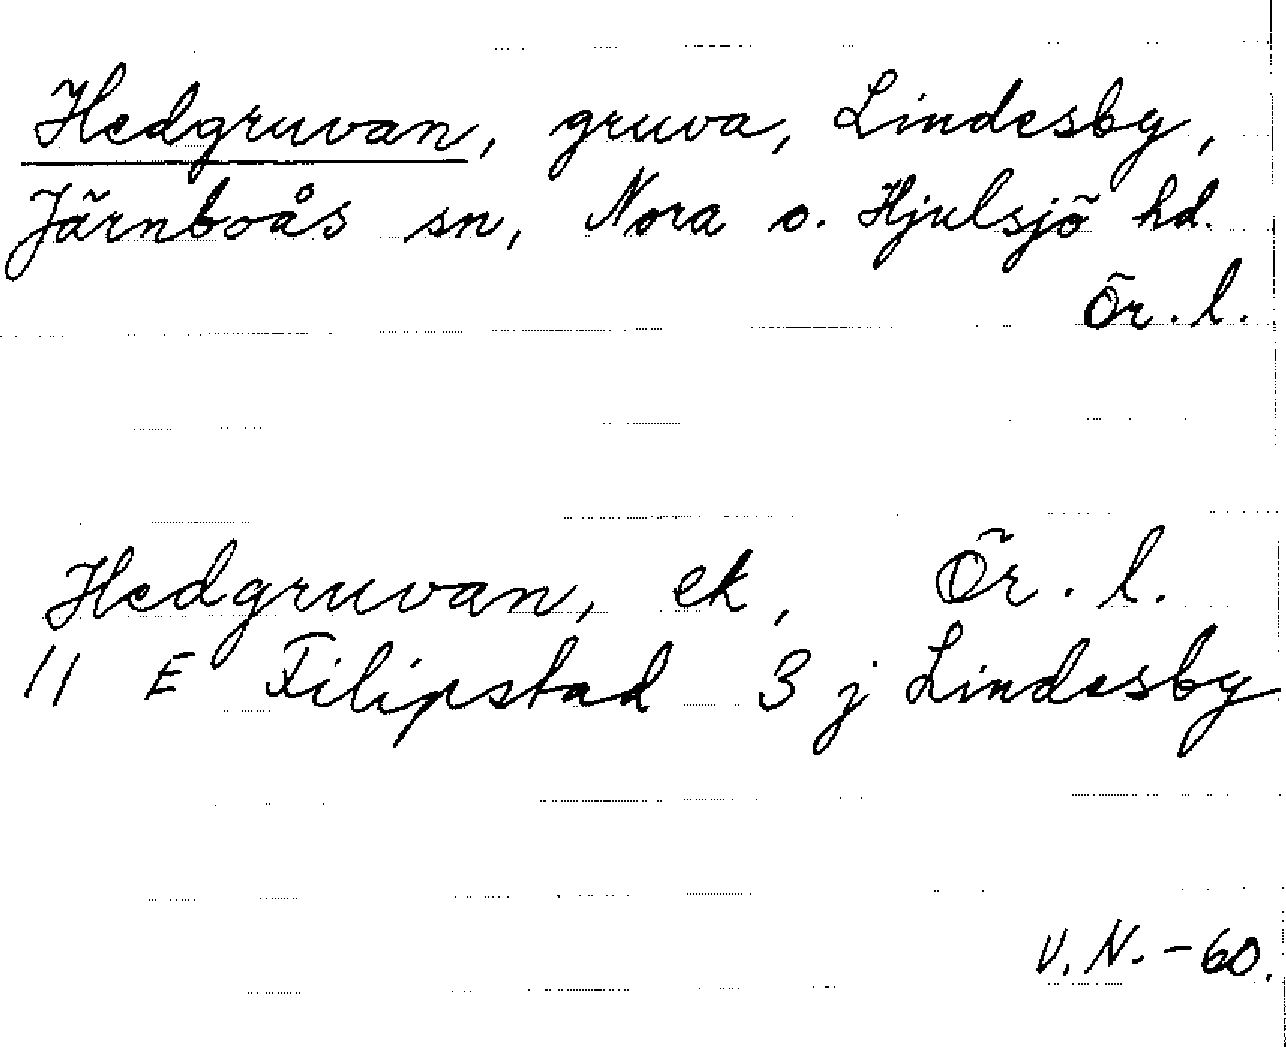 Hedgruvan, gruva, Lindesby,
Järnboås sn, Nora o. Hjulsjö hd.
Ör. l.
Hedgruvan, ek, Ör. l.
11 E Filipstad 3 j Lindesby
V. N. - 60.